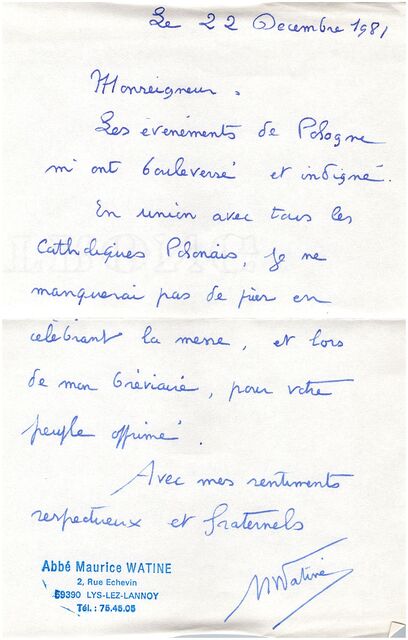 Le 22 Decembre 1981
Monseigneur.
Les événéments de Pologne
m'ont bouleversé et indigné.
En union avec tous les
Catholiques Polonais, Je ne
manquerai pas de prier en
célébrant la messe, et lors
de mon bréviaire, pour votre
peuple opprimé.
Avec mes sentiments
respectueux et fraternels
MWatine
Abbé Maurice WATINE
2, Rue Echevin
59390 LYS-LEZ-LANNOY
Tél. : 75.45.05